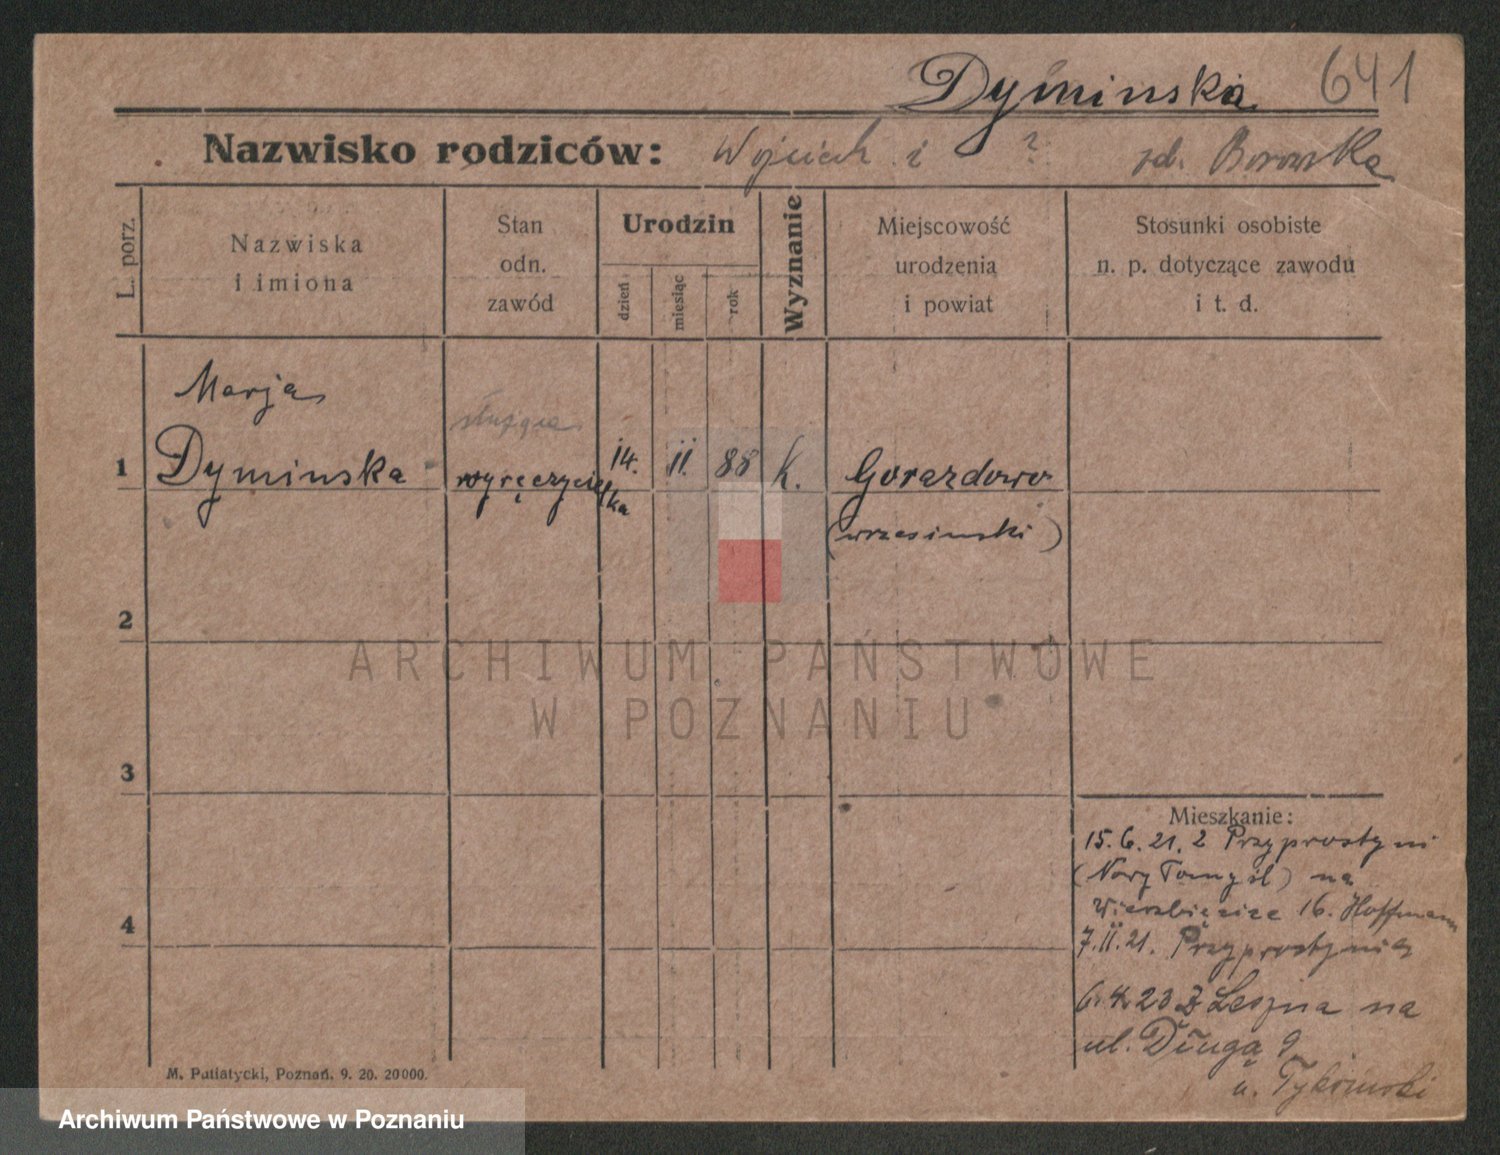 Dyminska 641
Nazwisko rodziców: Wojciech i ? zd. Borowska
L. porz.
Nazwiska
i imiona
Stan
odn.
zawód
Urodzin
dzień
miesiąc
rok
Wyznanie
Miejscowość
urodzenia
i powiat
Stosunki osobiste
n. p. dotyczące zawodu
i t. d.
Marja
służąca
1 Dyminska wyręczyciel 14. II. 88 k. Gorazdowo
ka
(wrzesinski)
2
ARCHIWUM PAŃSTWOWE
W POZNANIU
3
Mieszkanie:
15. 6. 21. z Przyprostyni
(Nowy Tomyśl) na
Wierzbięcice 16. Hoffmann
4
7. II. 21. Przyprostynia
6. 4. 23 z Leszna na
ul. Długą 9
u.
M. Putiatycki, Poznań. 9. 20. 20000.
Archiwum Państwowe w Poznaniu